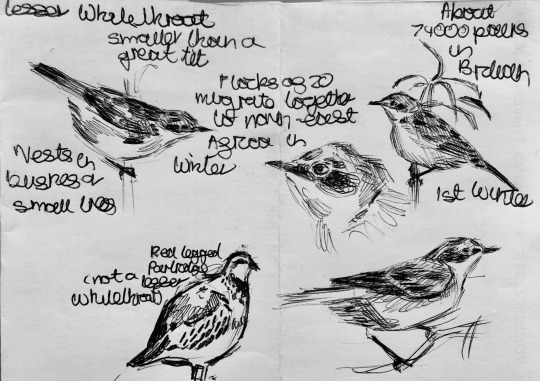 Lesser Whitethroat
smaller than a
great tit
About
74000 pairs
in
Britain
Flocks of 20
migrate together
to north-east
Africa in
Winter
Nests in
bushes or
small trees
1st Winter
Red legged
Partridge
(not a lesser
Whitethroat